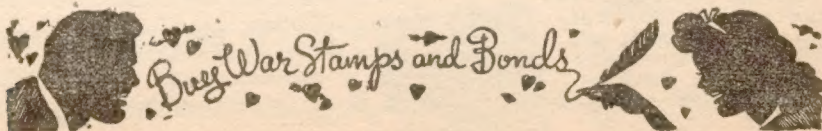 Buy War Stamps and Bonds